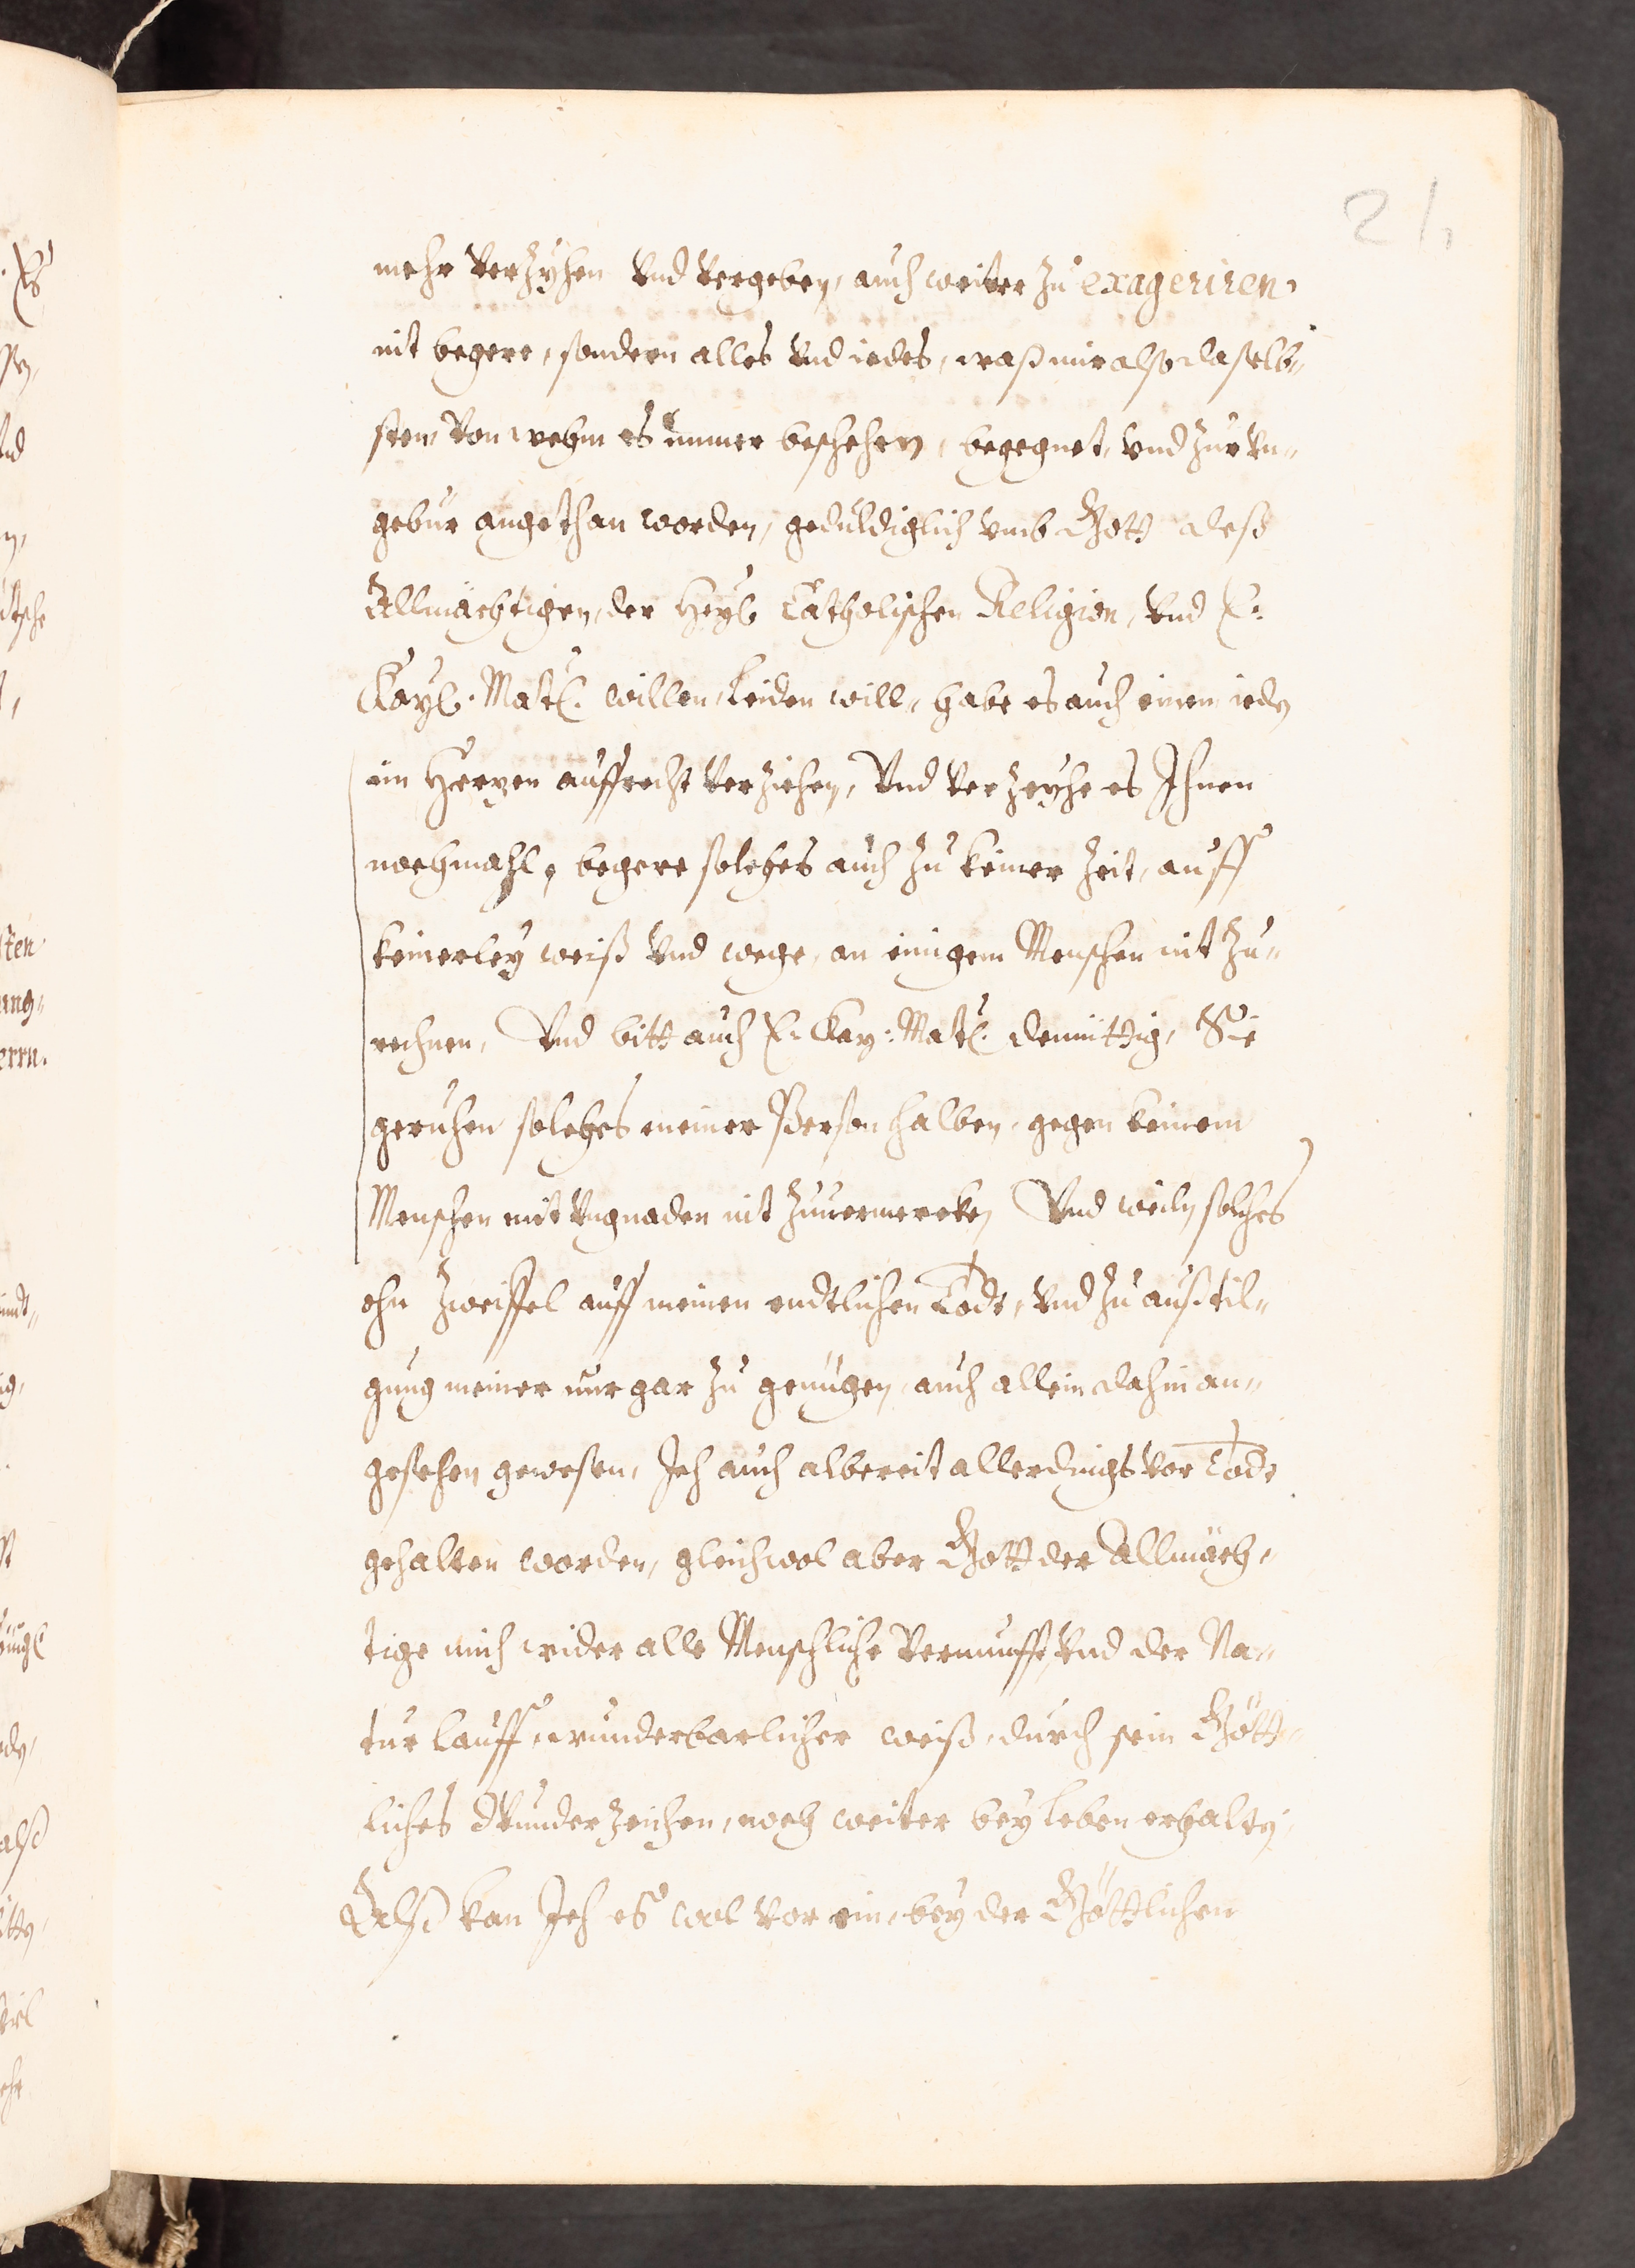 21,
mehr Verzyhen Vnd Vergeben, auch weiter zu exageriren,
nit begere, sondern alles Vnd iedes, waß mir also daselb„
sten, Von wehm es immer beschehen, begegnet, Vnd zur Vn„
gebur angethan worden, gedüldiglich vmb Gott deß
Allmächtigen, der Heyl. Catholischen Religion, Vnd E.
Kayl. Matl. willen, Leiden will„ habe es auch einem ieden
im Herzen auffrecht Verziehen, Vnd Verzeyhe es Ihnen
nochmahl, begere solches auch zu keiner Zeit, auff
keinerley weiß Vnd wege, an einigem Menschen nit zu„
rechnen, Vnd bitt auch E. Kay: Matl. demüttig, Sie
geruhen solches meiner Person halben, gegen keinem
Menschen mit Vngnaden nit zuuermercken, Vnd weiln solches
ohn Zweiffel auff meinen endtlichen Todt, Vnd zu außtil„
gung meiner nur gar zu genügen, auch allein dahin an„
gesehen gewesen, Ich auch albereit allerdings Vor Todt
gehalten worden, gleichwol aber Gott der Allmäch„
tige mich wider alle Menschliche Vernunfft, Vnd der Na„
tur lauff, wunderbarlicher weiß, durch sein Gött„
liches Wunderzeichen, noch weiter bey leben erhalten,
Also kan Ich es wol Vor ein, bey der Göttlichen